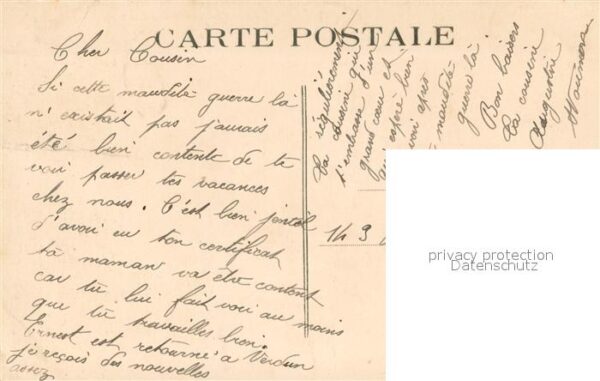 CARTE POSTALE
Cher Cousin
Si cette maudite guerre là
n'existait pas j'aurais
été bien contente de te
voir passer tes vacances
chez nous. C'est bien jentil
d'avoi eu ton certificat
ta maman va être content
car tu lui fait voi au moins
que tu travailles bien.
Ernest est retourné a Verdun
je reçois des nouvelles
assez
régulièrement
Ta cousine qui
t'embrasse d'un
grand cœur et
espère bien
voi après
maudite
guerre là
Bon baisers
Ta cousine
Augustine
14 3
privacy protection
Datenschutz